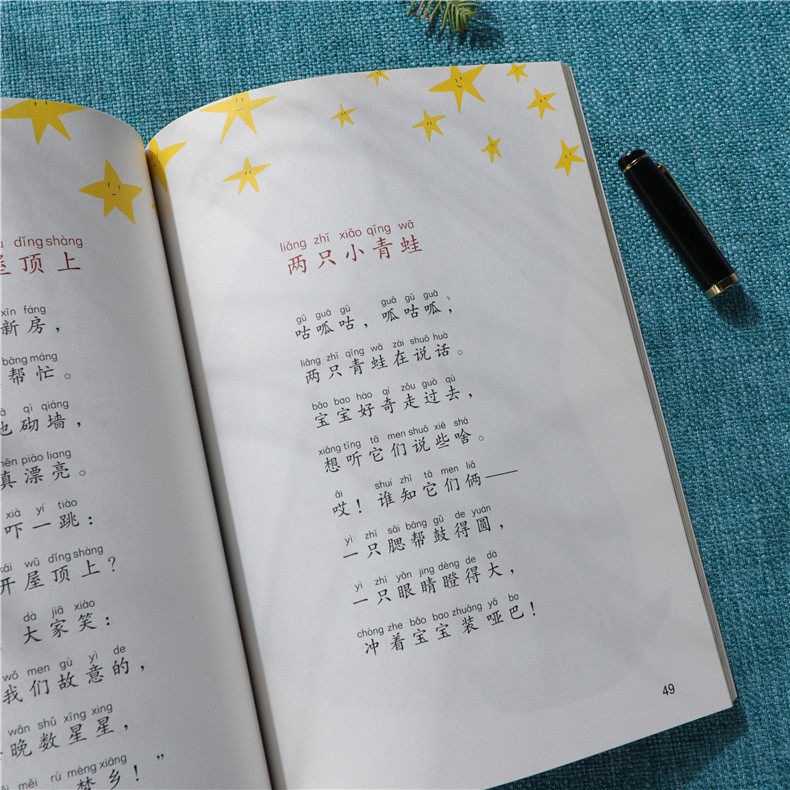 dǐng shàng
屋顶上
xīn fáng
新房，
bāng máng
帮忙。
qì qiáng
他砌墙，
piào liang
真漂亮。
xià yí tiào
吓一跳：
wū dǐng shàng
开屋顶上？
dà jiā xiào
大家笑：
wǒ men gù yì de
我们故意的，
wǎn shǔ xīng xing
晚数星星，
měi rù mèng xiāng
梦乡！”
liǎng zhī xiǎo qīng wā
两只小青蛙
gū guā gū guā gū guā
咕呱咕，呱咕呱，
liǎng zhī qīng wā zài shuō huà
两只青蛙在说话。
bǎo bao hào qí zǒu guò qù
宝宝好奇走过去，
xiǎng tīng tā men shuō xiē shá
想听它们说些啥。
āi shuí zhī tā men liǎ
哎！谁知它们俩——
yì zhī sāi bāng gǔ de yuán
一只腮帮鼓得圆，
yì zhī yǎn jing dèng de dà
一只眼睛瞪得大，
chòng zhe bǎo bao zhuāng yǎ ba
冲着宝宝装哑巴！
49